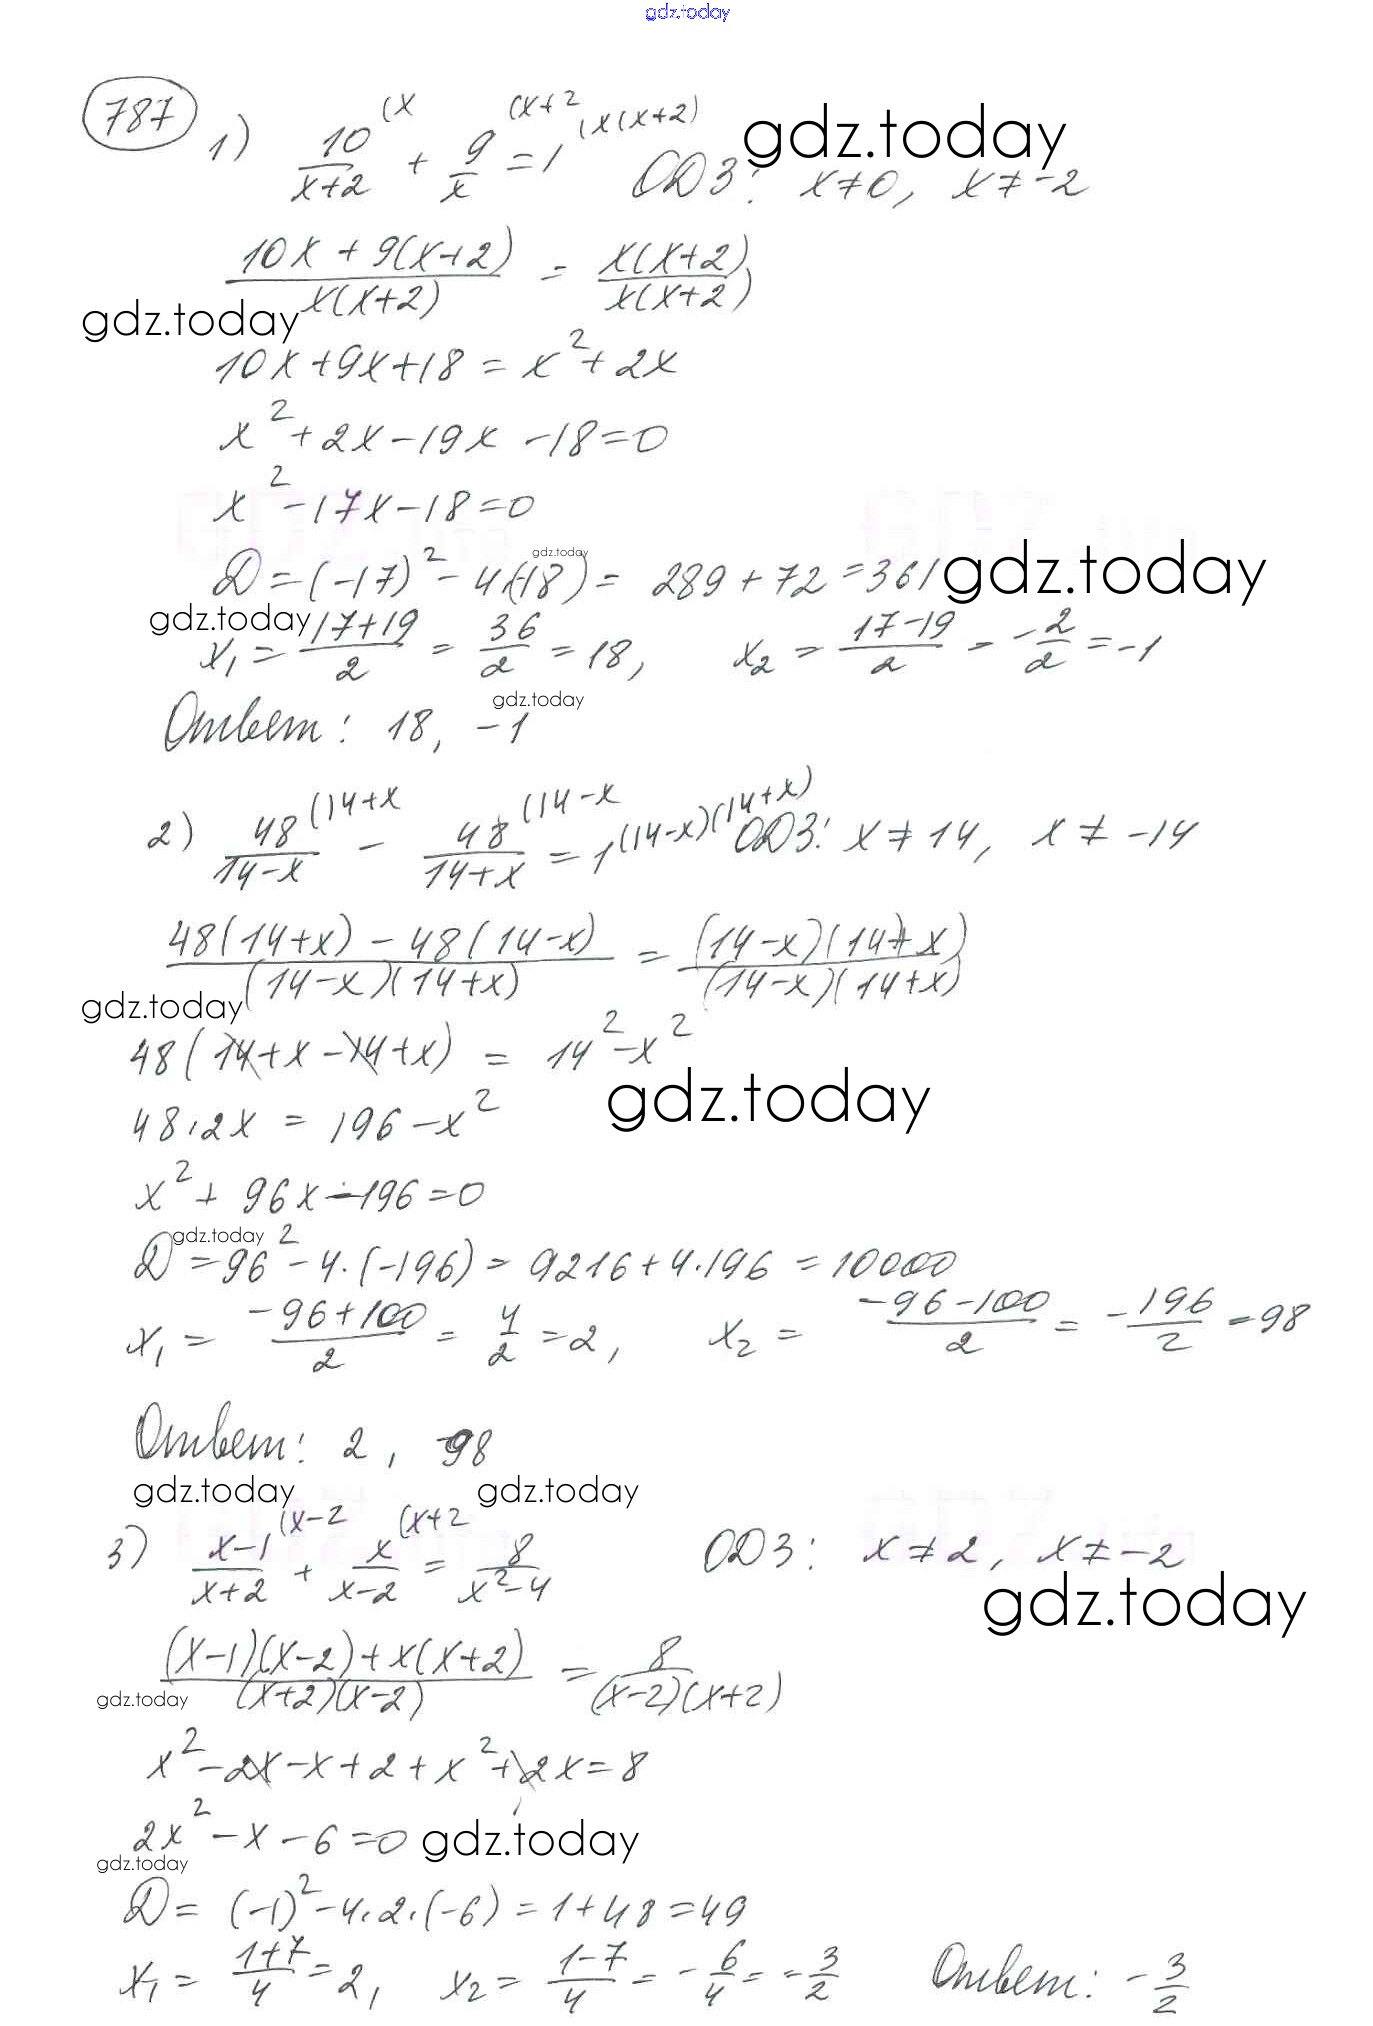 gdz.today
787
1) 10/(x+2) (x + 9/x (x+2 = 1 (x(x+2) ОДЗ: x≠0, x≠-2
gdz.today
(10x + 9(x+2))/(x(x+2)) = (x(x+2))/(x(x+2))
gdz.today
10x+9x+18 = x²+2x
x²+2x-19x-18=0
x²-17x-18=0
gdz.today
D=(-17)²-4·(-18)= 289+72=361 gdz.today
gdz.today
x₁=(17+19)/2 = 36/2 = 18, x₂ = (17-19)/2 = -2/2 = -1
gdz.today
Ответ: 18, -1
2) 48/(14-x) (14+x - 48/(14+x) (14-x = 1 (14-x)(14+x) ОДЗ: x≠14, x≠-14
(48(14+x)-48(14-x))/((14-x)(14+x)) = ((14-x)(14+x))/((14-x)(14+x))
gdz.today
48(14+x-14+x) = 14²-x²
gdz.today
48·2x = 196-x²
x²+96x-196=0
gdz.today
D=96²-4·(-196)= 9216+4·196=10000
x₁= (-96+100)/2 = 4/2 = 2, x₂ = (-96-100)/2 = -196/2 = -98
Ответ: 2, -98
gdz.today gdz.today
3) (x-1)/(x+2) (x-2 + x/(x-2) (x+2 = 8/(x²-4) ОДЗ: x≠2, x≠-2
gdz.today
((x-1)(x-2)+x(x+2))/((x+2)(x-2)) = 8/((x-2)(x+2))
gdz.today
x²-2x-x+2+x²+2x=8
2x²-x-6=0 gdz.today
gdz.today
D= (-1)²-4·2·(-6)=1+48=49
x₁= (1+7)/4 = 2, x₂= (1-7)/4 = -6/4 = -3/2 Ответ: -3/2